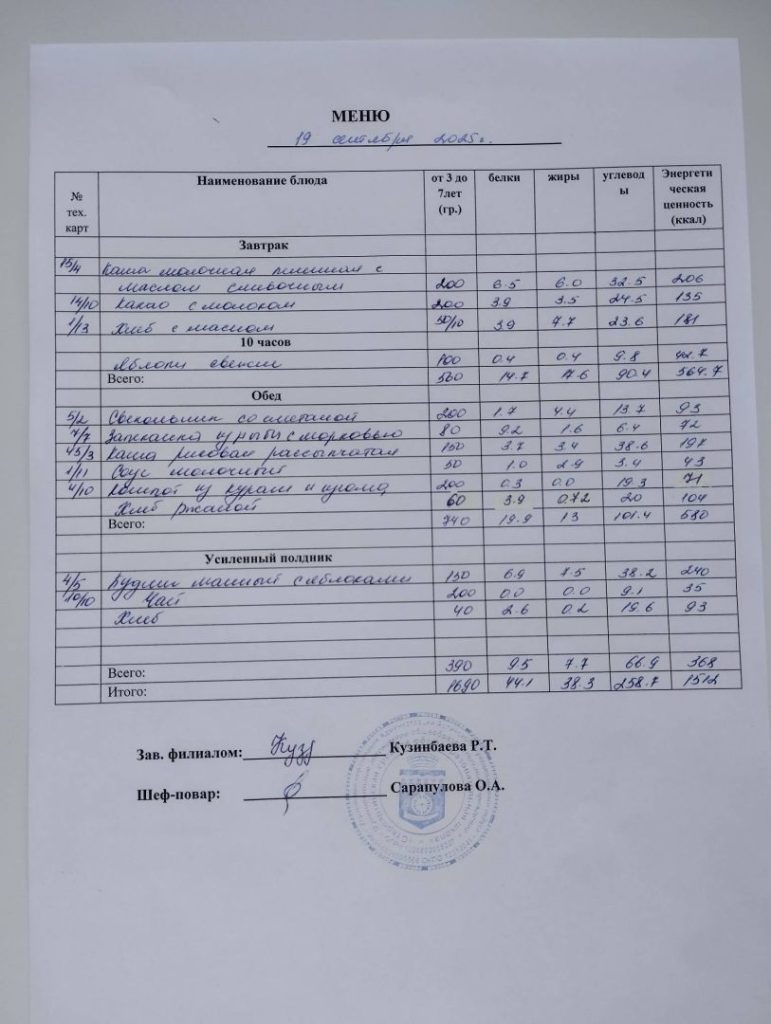 МЕНЮ
19 сентября 2025г.
№ тех. карт Наименование блюда от 3 до 7лет (гр.) белки жиры углеводы Энергетическая ценность (ккал)
Завтрак
15/4 Каша молочная пшенная с
маслом сливочным 200 6.5 6.0 32.5 206
14/10 Какао с молоком 200 3.9 3.5 24.5 135
1/13 Хлеб с маслом 50/10 3.9 7.7 23.6 181
10 часов
Яблоки свежие 100 0.4 0.4 9.8 42.7
Всего: 560 14.7 17.6 90.4 564.7
Обед
5/2 Свекольник со сметаной 200 1.7 4.4 13.7 93
7/7 Запеканка из рыбы с морковью 80 9.2 1.6 6.4 72
43/3 Каша рисовая рассыпчатая 150 3.7 3.4 38.6 197
1/11 Соус молочный 50 1.0 2.9 3.4 43
4/10 Компот из кураги и изюма 200 0.3 0.0 19.3 71
Хлеб ржаной 60 3.9 0.72 20 104
Всего: 740 19.9 13 101.4 580
Усиленный полдник
4/5 Пудинг манный с яблоками 150 6.9 7.5 38.2 240
10/10 Чай 200 0.0 0.0 9.1 35
Хлеб 40 2.6 0.2 19.6 93
Всего: 390 9.5 7.7 66.9 368
Итого: 1690 44.1 38.3 258.7 1512
Зав. филиалом: Кузинбаева Р.Т.
Шеф-повар: Сарапулова О.А.